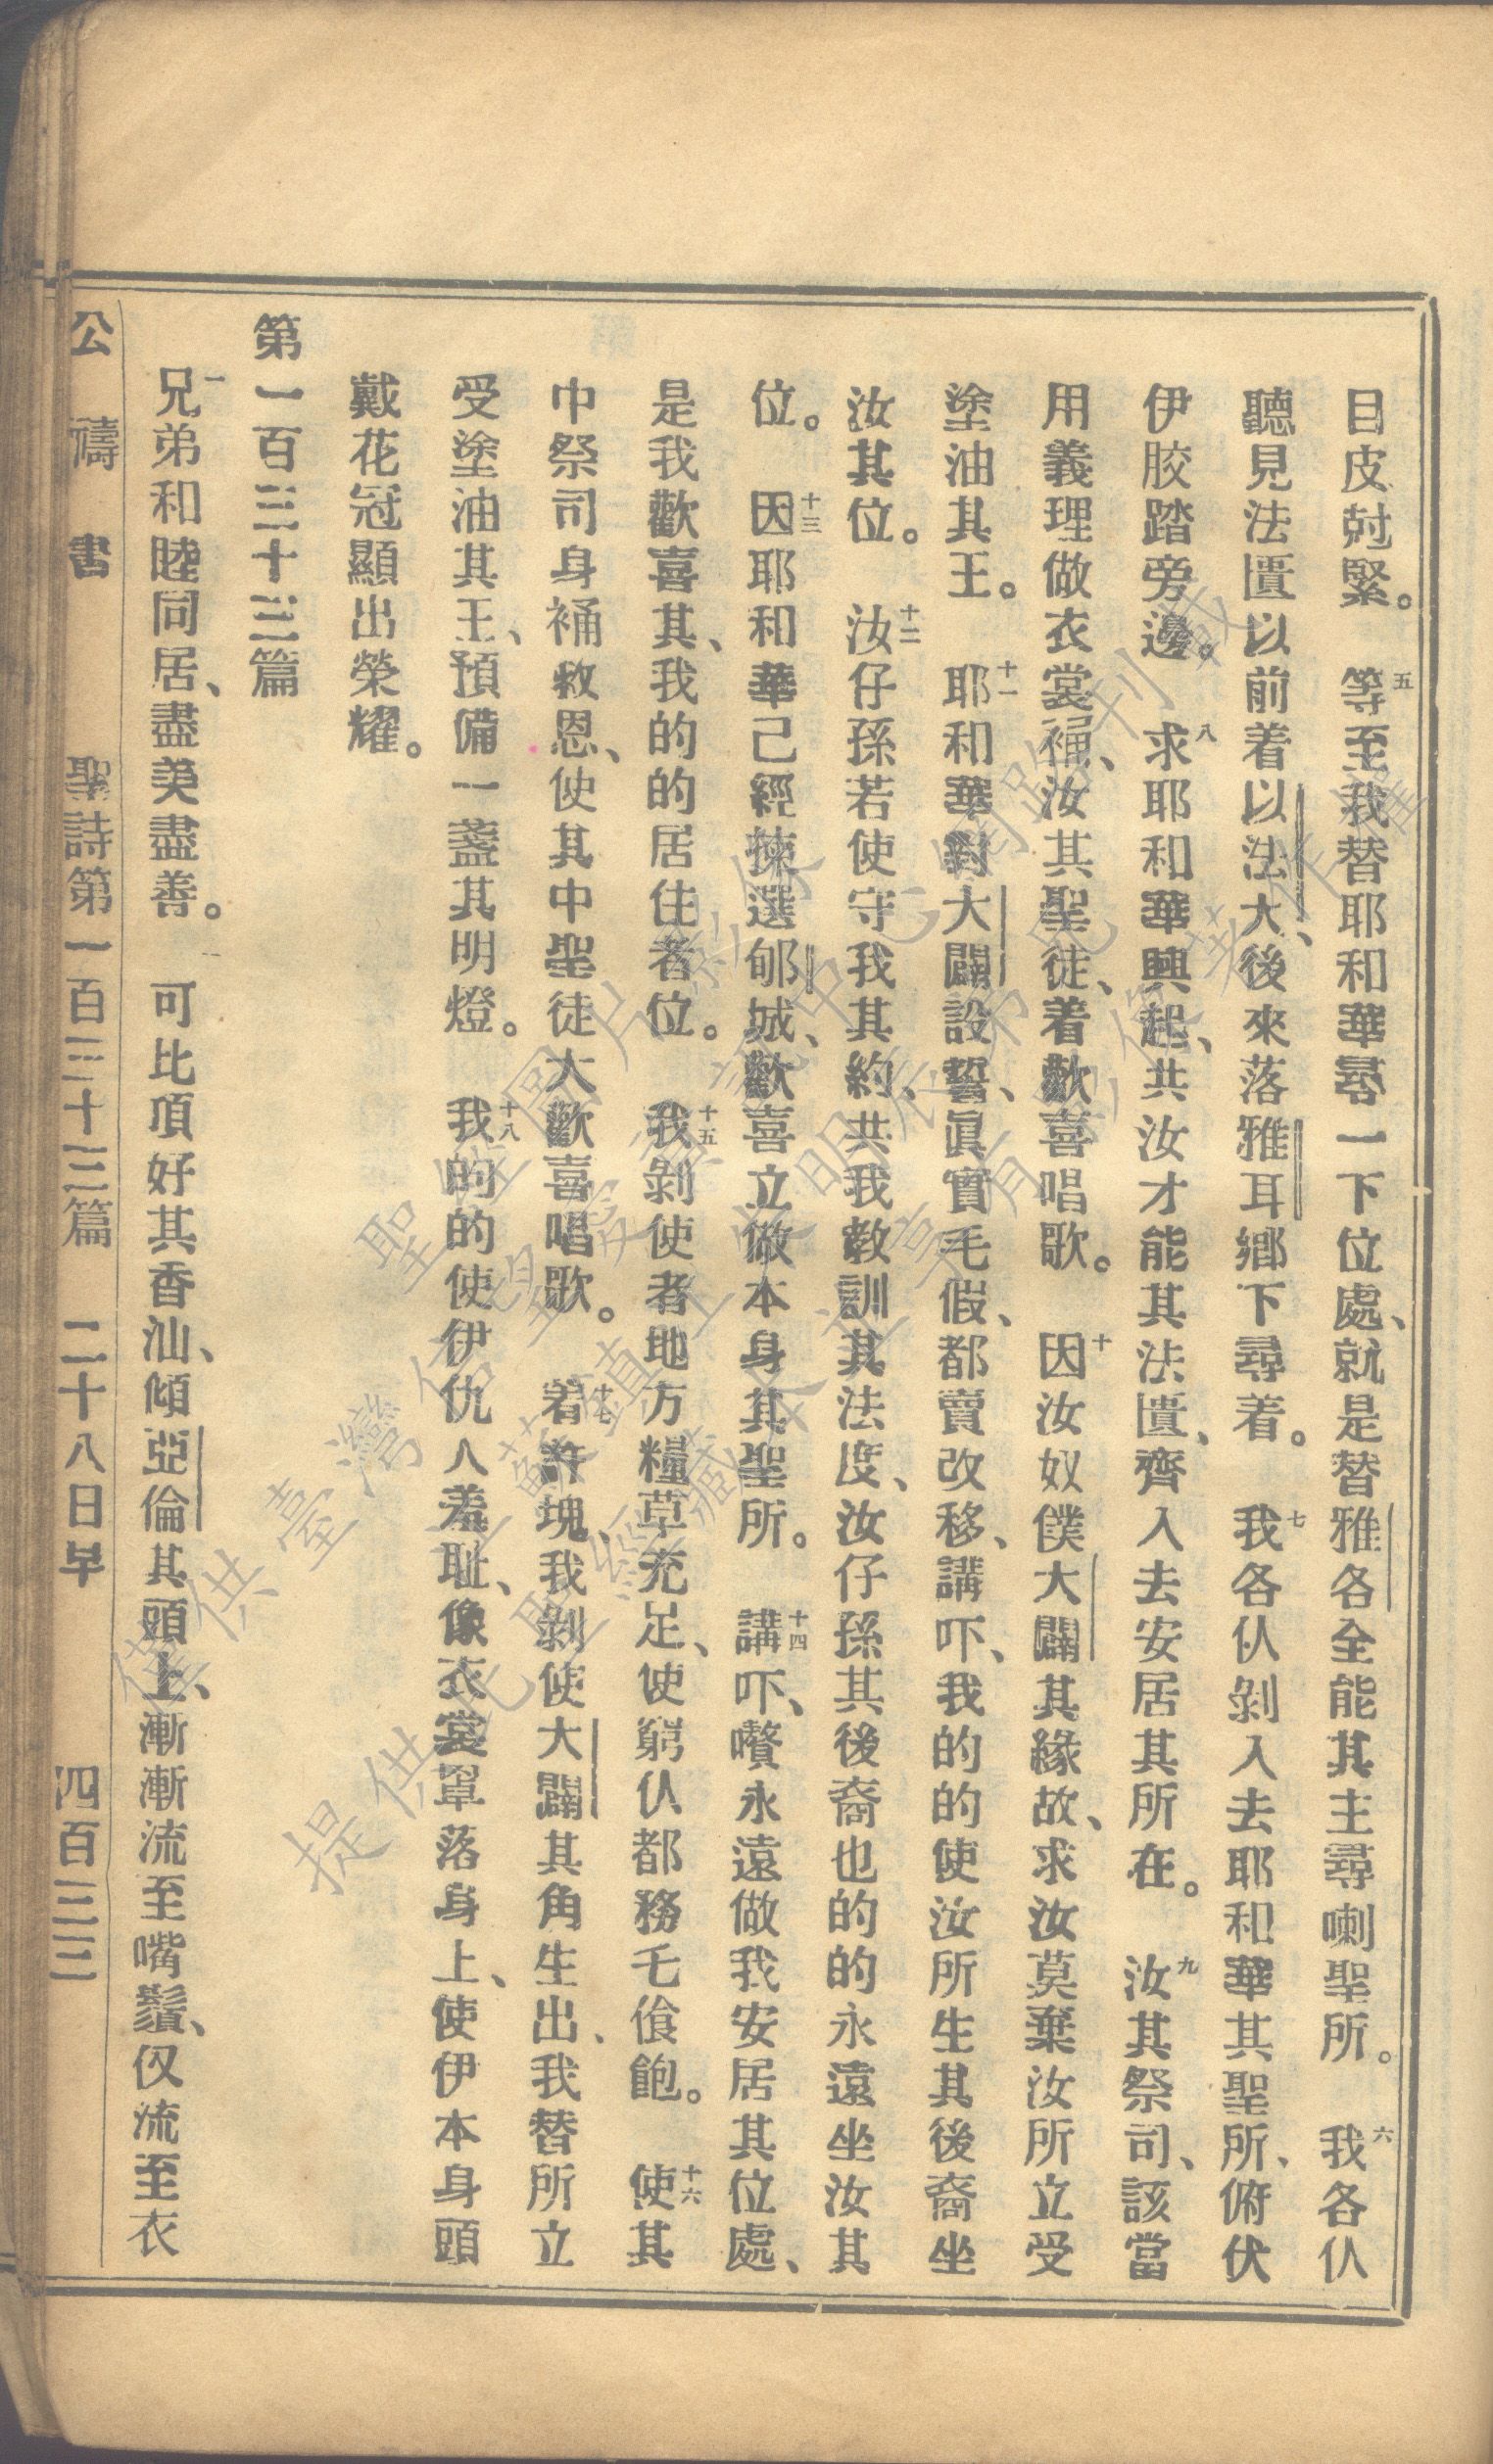 目皮尅緊。五等至我替耶和華尋一下位處、就是替雅各全能其主尋喇聖所。六我各仈
聽見法匱以前着以法大、後來落雅耳鄉下尋着。七我各仈剝入去耶和華其聖所、俯伏
伊胶踏旁邊。八求耶和華興起、共汝才能其法匱、齊入去安居其所在。九汝其祭司、該當
用義理做衣裳䙛、汝其聖徒、着歡喜唱歌。十因汝奴僕大闢其緣故、求汝莫棄汝所立受
塗油其王。十一耶和華對大闢設誓、眞實毛假、都賣改移、講吓、我的的使汝所生其後裔坐
汝其位。十二汝仔孫若使守我其約、共我教訓其法度、汝仔孫其後裔也的的永遠坐汝其
位。十三因耶和華己經揀選郇城、歡喜立做本身其聖所。十四講吓、囋永遠做我安居其位處、
是我歡喜其、我的的居住者位。十五我剝使者地方糧草充足、使窮仈都務毛飡飽。十六使其
中祭司身補救恩、使其中聖徒大歡喜唱歌。十七着許塊、我剝使大闢其角生出、我替所立
受塗油其王、預備一盞其明燈。十八我的的使伊仇人羞耻、像衣裳罩落身上、使伊本身頭
戴花冠顯出榮耀。
第一百三十三篇
一兄弟和睦同居、盡美盡善。二可比頂好其香油、傾亞倫其頭上、漸漸流至嘴鬚、仅流至衣
公禱書 聖詩第一百三十三篇 二十八日早 四百三三